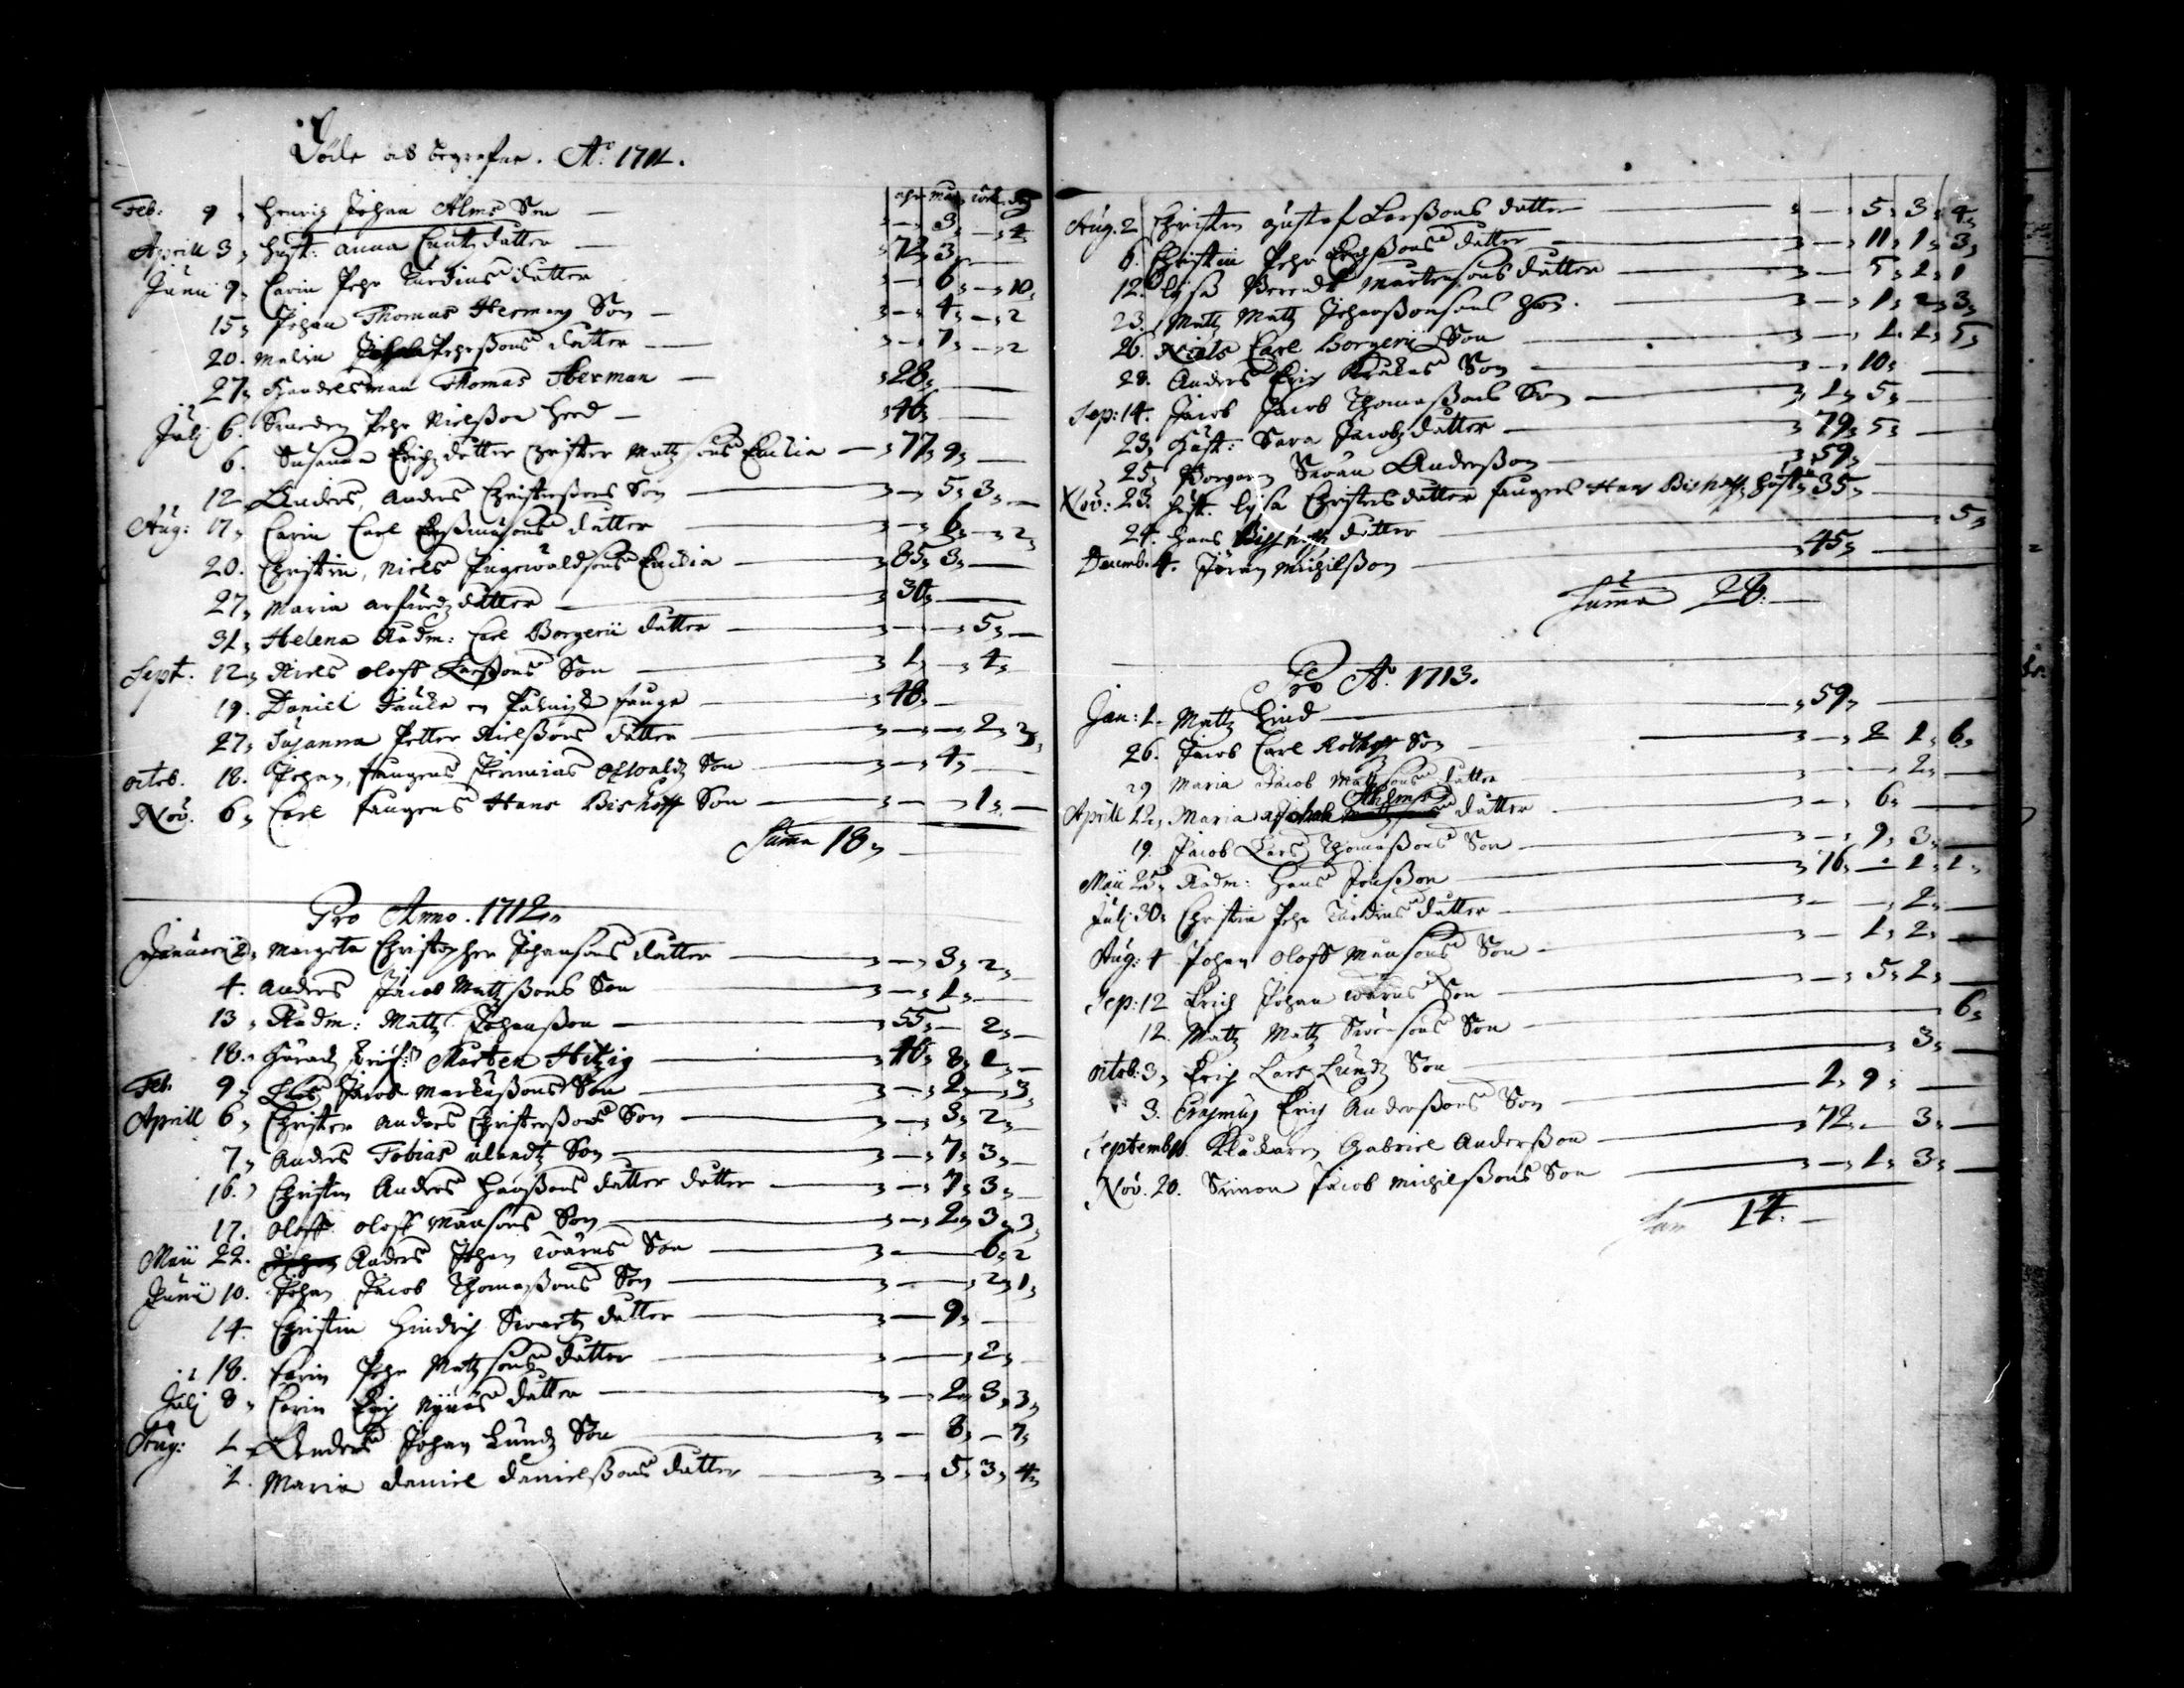 Döde och begrafne. A:o 1711.
åhr, mån, wek, d
Feb: 9, Henrich Johan Alms Son — 3, — 4
Aprill 3, Hust: Anna datter — 72, 3,
Junii 9, Carin Pehr Turdins datter — 6, — 10,
15, Johan Thomas Hermans Son — 4, — 2
20. Malin Pehrßons datter — 7, — 2
27, Handelsman Thomas Herman — 28,
Julj 6. Smeden Pehr Nielßon — 46,
6. Susanna Erichz datter Christer Matzsons Enckia — 77, 9,
12 Anders, Anders Christerßons Son — 5, 3,
Aug: 17, Carin Carl datter — 6, — 2,
20. Christin, Niels Ingewaldsons Enckia — 85, 3,
27, Maria datter — 30,
31, Helena Rådm: Carl Borgerii datter — 5,
Sept. 12, Niels Oloff Larßons Son — 1, — 4,
19. Daniel en fånge — 48,
27, Susanna Petter Nielßons datter — 2, 3,
Octob. 18. Johan, fångens Jeremias Oswaldz Son — 4,
Nov. 6, Carl fångens Hans Bishoff Son — 1,
Suma 18,
Pro Anno. 1712,
Januarii 2, Margeta Christopher Johansons datter — 3, 2,
4. Anders Jacob Matzßons Son — 1,
13, Rådm: Matz Johanßon — 55, — 2,
18. Härads Skrif: Morten Hitzig — 46, 8, 1,
Feb. 9, Jacob Markußons Son — 2, — 3,
Aprill 6, Christer Anders Christerßons Son — 3, 2,
7, Anders Tobias Son — 7, 3,
16. Christin Anders Hanßons datter datter — 7, 3,
17. Oloff Oloff Månsons Son — 2, 3, 3,
Maii 22. Anders Johan Wärns Son — 6, 2
Junii 10. Johan Jacob Thomaßons Son — 2, 1,
14. Christin Hindrich Swartz datter — 9,
18. Carin Pehr Matzsons datter — 2,
Julj 8, Carin Erich datter — 2, 3, 3,
Aug: 1. Anders Johan Lundz Son — 8, — 7,
2. Maria Daniel Danielßons datter — 5, 3, 4,
Aug. 2 Christin Gustaf Larßons datter — 5, 3, 4,
6. Christin Pehr Erichßons datter — 11, 1, 3,
12. Lisa Berendt Mårtensons datter — 5, 2, 1
23. Matz Matz Son — 1, 2, 3,
26. Niels Carl Borgerii Son — 1. 1, 5,
28. Anders Erich Son — 10,
Sep: 14. Jacob Jacob Thomaßons Son — 1, 5,
23, Hust: Sara Jacobz datter — 79, 5,
25, Borgaren Swän Anderßon — 59,
Nov: 23. Hust. Lisa Christers datter fångens Hans Bishoffz Hustru 35,
24. Hans Bishoffz datter — 5,
Decemb. 4. Jöran Michilßon — 45,
Suma 28.
Pro A:o 1713.
Jan: 1. Matz Lind — 59,
26. Jacob Carl Rothoff Son — 2 1, 6,
29 Maria Jacob Matzsons datter — 2,
Aprill 12, Maria Johan Ahlms datter — 6,
19. Jacob Lars Thomaßons Son — 9, 3,
Maii 25, Rådm: Hans Jonßon — 76, — 1, 1,
Julj 30, Christin Pehr Turdins datter — 2,
Aug: 4 Johan Oloff Månsons Son — 1, 2,
Sep: 12 Erich Johan Wärns Son — 5, 2,
12. Matz Matz Swensons Son — 6,
Octob: 3, Erich Lars Lundz Son — 3,
3. Erasmus Erich Anderßons Son — 1, 9,
September Klåckaren Gabriel Anderßon — 72, — 3,
Nov. 20. Simon Jacob Michilßons Son — 1, 3,
Sum 14.